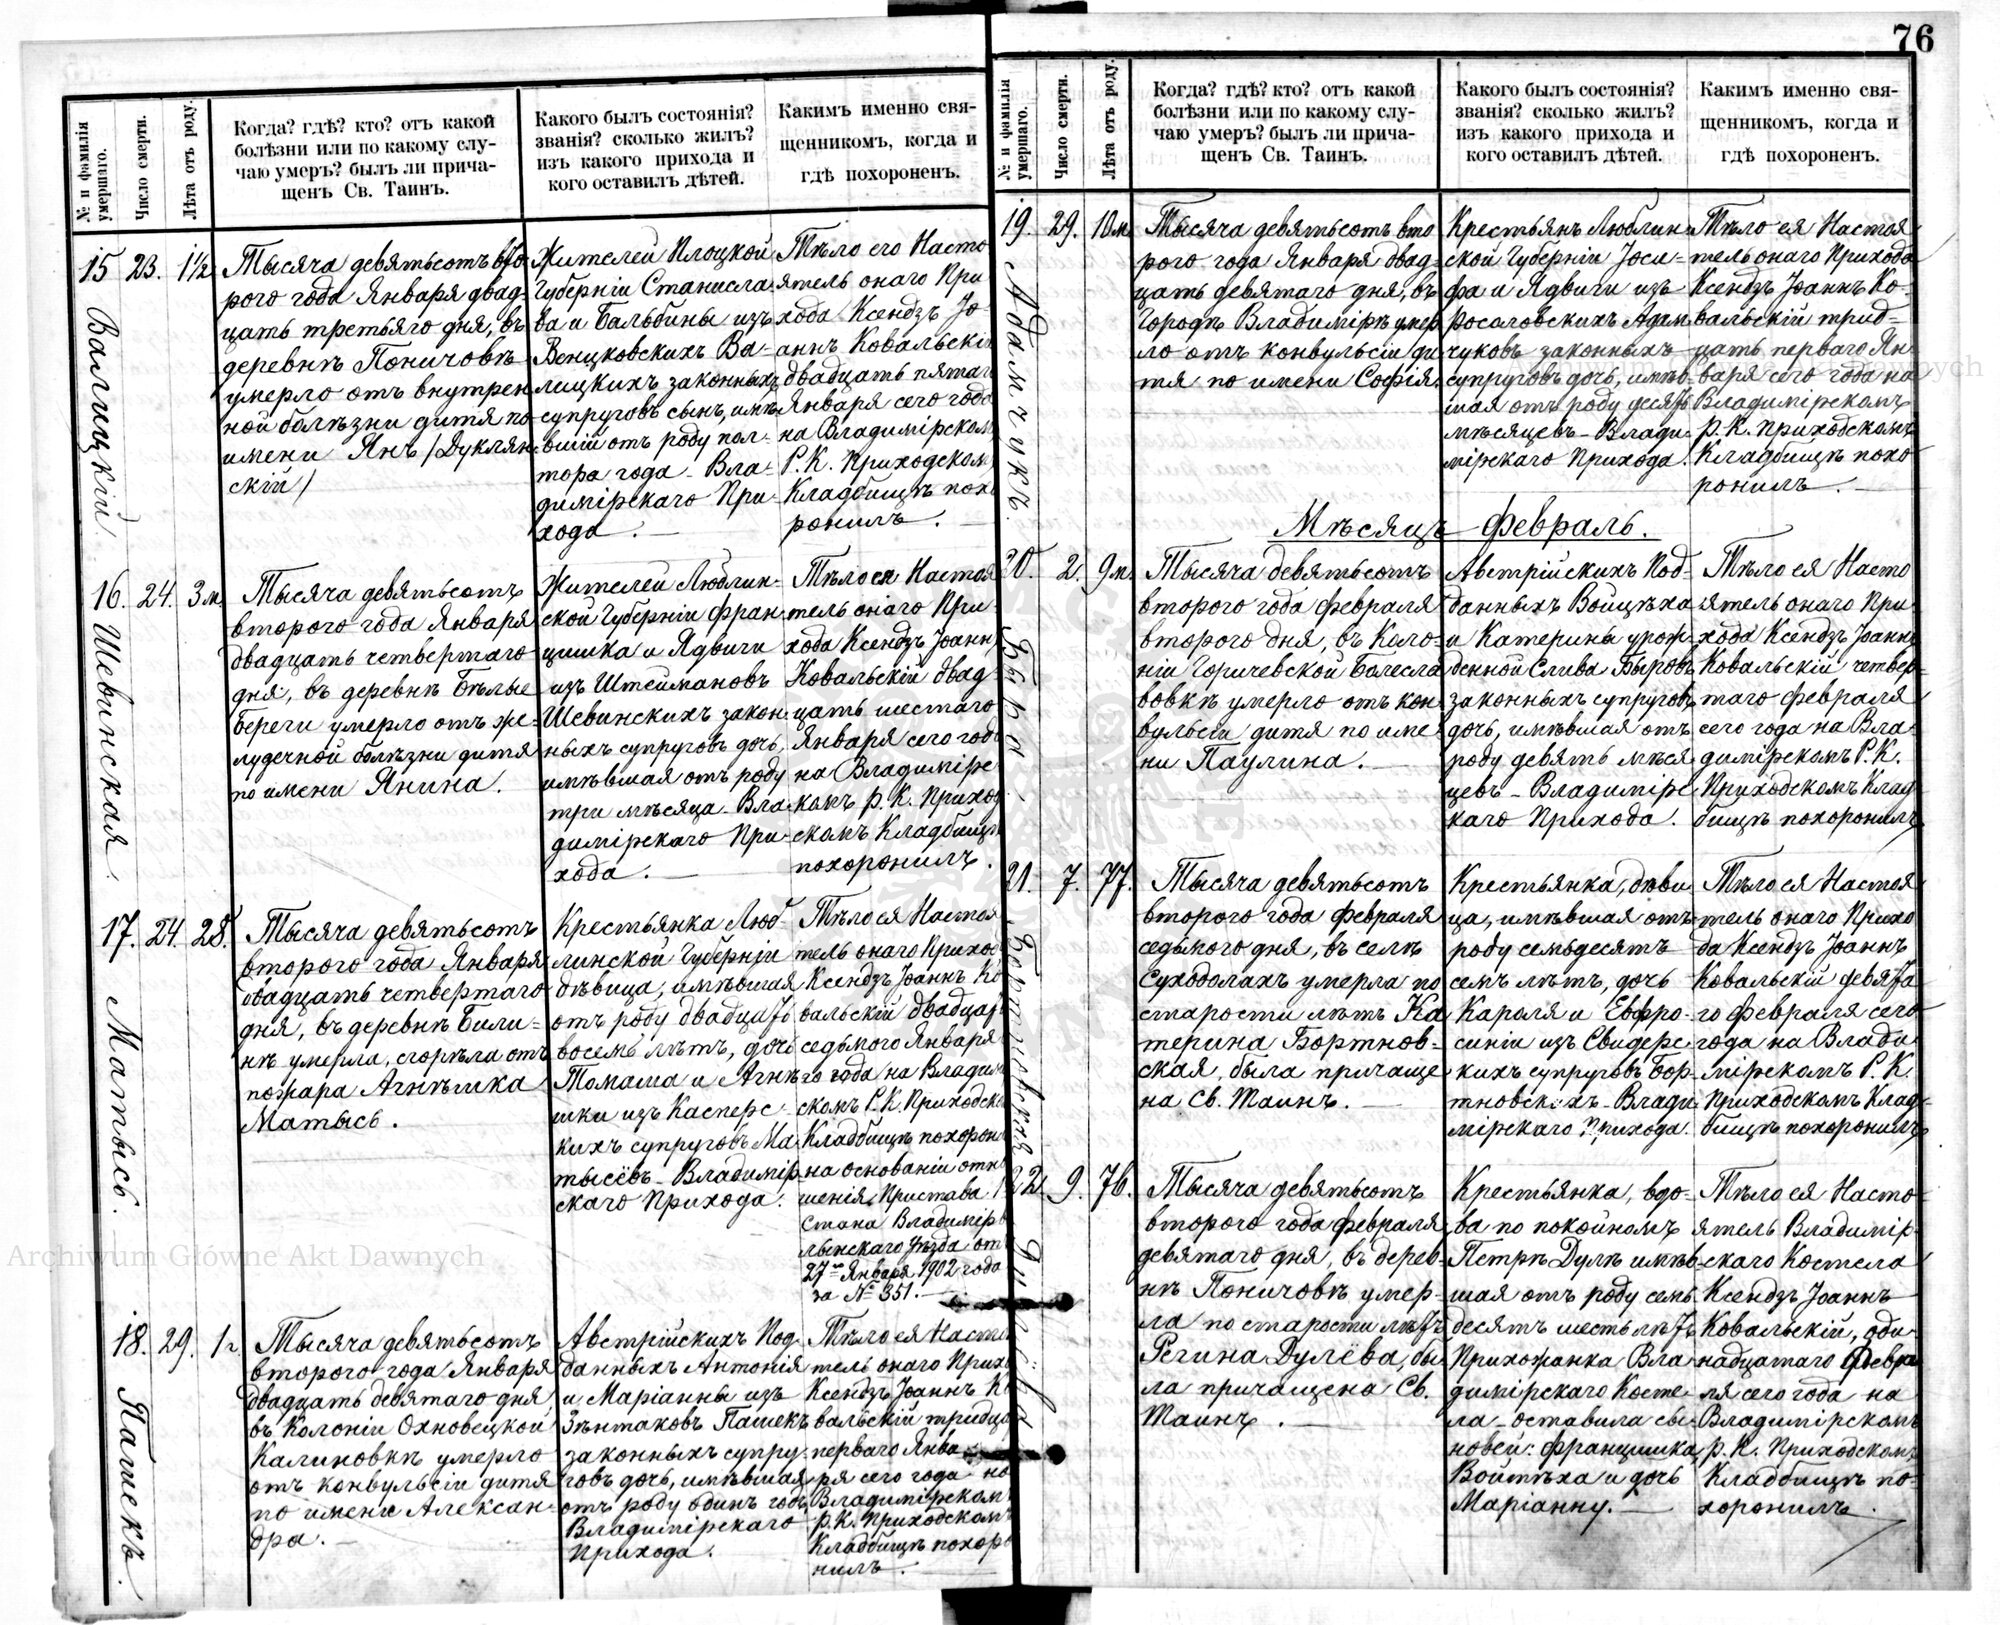 76
№ и фамилія умершаго.
Число смерти.
Лѣта отъ роду.
Когда? гдѣ? кто? отъ какой
болѣзни или по какому слу-
чаю умеръ? былъ ли прича-
щенъ Св. Таинъ.
Какого былъ состоянія?
званія? сколько жилъ?
изъ какого прихода и
кого оставилъ дѣтей.
Какимъ именно свя-
щенникомъ, когда и
гдѣ похороненъ.
15
Валицкій.
23.
1½
Тысяча девятьсотъ вто
рого года Января двад-
цать третьяго дня, въ
деревнѣ Поничовкѣ
умерло отъ внутрен
ной болѣзни дитя по
имени Янъ /Дуклян
скій/
Жителей Плоцкой
Губерніи Станисла
ва и Бальбины изъ
Венцковскихъ Ва-
лицкихъ законныхъ
супруговъ сынъ, имѣ
вшій отъ роду пол-
тора года - Вла-
димірскаго При-
хода.
Тѣло его Насто
ятель онаго При
хода Ксендзъ Іо-
аннъ Ковальскій
двадцать пятаго
Января сего года
на Владимірском
Р.К. Приходском
Кладбищѣ похо
ронилъ.
16.
Шевинская.
24.
3 м.
Тысяча девятьсотъ
второго года Января
двадцать четвертаго
дня, въ деревнѣ Бѣлые
береги умерло отъ же-
лудечной болѣзни дитя
по имени Янина.
Жителей Люблин-
ской Губерніи Фран
цишка и Ядвиги
изъ Штеймановъ
Шевинскихъ закон
ныхъ супруговъ дочь,
имѣвшая отъ роду
три мѣсяца - Вла-
димірскаго При-
хода.
Тѣло ея Настоя
тель онаго При
хода Ксендзъ Іоаннъ
Ковальскій двад
цать шестаго
Января сего года
на Владимірс
комъ Р.К. Приход
скомъ Кладбищѣ
похоронилъ.
17.
Матысь.
24.
28.
Тысяча девятьсотъ
второго года Января
двадцать четвертаго
дня, въ деревнѣ Били-
нѣ умерла, сгорѣла отъ
пожара Агнѣшка
Матысь.
Крестьянка Люб-
линской Губерніи
дѣвица, имѣвшая
отъ роду двадцать
восемь лѣтъ, дочь
Томаша и Агнѣ
шки изъ Касперс-
кихъ супруговъ Ма
тысёвъ - Владимір
скаго Прихода.
Тѣло ея Настоя
тель онаго Прихо
Ксендзъ Іоаннъ Ко
вальскій двадцать
седьмого Января
го года на Владим
скомъ Р.К. Приходско
Кладбищѣ похорони
на основаніи отн
шенія Пристава 1
Стана Владимірв
лынскаго Уѣзда от
27го Января 1902 года
за № 351.
18.
Пашекъ.
29.
1 г.
Тысяча девятьсотъ
второго года Января
двадцать девятаго дня,
въ Колоніи Охновецкой
Калиновкѣ умерло
отъ конвульсіи дитя
по имени Алексан-
дра.
Австрійскихъ Под
данныхъ Антонія
и Маріанны изъ
Зентаковъ Пашекъ
законныхъ супру-
говъ дочь, имѣвшая
отъ роду одинъ годъ
Владимірскаго
Прихода.
Тѣло ея Насто
тель онаго Прихо
Ксендзъ Іоаннъ Ко
вальскій тридца
перваго Янва
ря сего года на
Владимірском
Р.К. Приходском
Кладбищѣ похоро
нилъ.
№ и фамилія умершаго.
Число смерти.
Лѣта отъ роду.
Когда? гдѣ? кто? отъ какой
болѣзни или по какому слу-
чаю умеръ? былъ ли прича-
щенъ Св. Таинъ.
Какого былъ состоянія?
званія? сколько жилъ?
изъ какого прихода и
кого оставилъ дѣтей.
Какимъ именно свя-
щенникомъ, когда и
гдѣ похороненъ.
19.
Адамчукъ.
29.
10 м.
Тысяча девятьсотъ вто
рого года Января двад-
цать девятаго дня, въ
Городѣ Владимірѣ умер
ло отъ конвульсіи ди
тя по имени Софія.
Крестьянъ Люблин
ской Губерніи Іоси-
фа и Ядвиги изъ
Росаловскихъ Адам
чуковъ законныхъ
супруговъ дочь, имѣв-
шая отъ роду десять
мѣсяцевъ - Влади
мірскаго Прихода.
Тѣло ея Настоя
тель онаго Прихода
Ксендзъ Іоаннъ Ко-
вальскій трид-
цать перваго Ян-
варя сего года на
Владимірскомъ
Р.К. Приходскомъ
Кладбищѣ похо
ронилъ.
Мѣсяцъ Февраль.
20.
Быра
2.
9 м.
Тысяча девятьсотъ
второго года февраля
второго дня, въ Коло-
ніи Горичевской Болесла
вовкѣ умерло отъ кон
вульсіи дитя по име
ни Паулина.
Австрійскихъ Под-
данныхъ Войцѣха
и Катерины урож-
денной Слива Быровъ
законныхъ супруговъ
дочь, имѣвшая отъ
роду девять мѣся
цевъ - Владимірс
каго Прихода.
Тѣло ея Насто
ятель онаго При
хода Ксендзъ Іоаннъ
Ковальскій четвер-
таго февраля
сего года на Вла-
димірскомъ Р.К.
Приходскомъ Клад-
бищѣ похоронилъ
21.
Бортновская
7.
77.
Тысяча девятьсотъ
второго года февраля
седьмого дня, въ селѣ
Суходолахъ умерла по
старости лѣтъ Ка
терина Бортнов-
ская, была причаще
на Св. Таинъ.
Крестьянка, дѣви
ца, имѣвшая отъ
роду семьдесятъ
семь лѣтъ, дочь
Кароля и Евфро-
синіи изъ Свидерс
кихъ супруговъ Бор-
тновскихъ - Влади
мірскаго Прихода.
Тѣло ея Настоя
тель онаго Прихо
да Ксендзъ Іоаннъ
Ковальскій девята
го февраля сего
года на Влади
мірскомъ Р.К.
Приходскомъ Клад-
бищѣ похоронилъ
22.
Дулёва
9.
76.
Тысяча девятьсотъ
второго года февраля
девятаго дня, въ дерев-
нѣ Поничовкѣ умер-
ла по старости лѣтъ
Регина Дулёва, бы
ла причащена Св.
Таинъ.
Крестьянка, вдо-
ва по покойномъ
Петрѣ Дулѣ имѣв-
шая отъ роду семь
десятъ шесть лѣтъ
Прихожанка Вла
димірскаго Косте-
ла - оставила сы-
новей: Францишка,
Войтѣха и дочь
Маріанну.
Тѣло ея Насто-
ятель Владимір-
скаго Костела
Ксендзъ Іоаннъ
Ковальскій, оди-
надцатаго Февра
ля сего года на
Владимірскомъ
Р.К. Приходскомъ
Кладбищѣ по-
хоронилъ.
Archiwum Główne Akt Dawnych